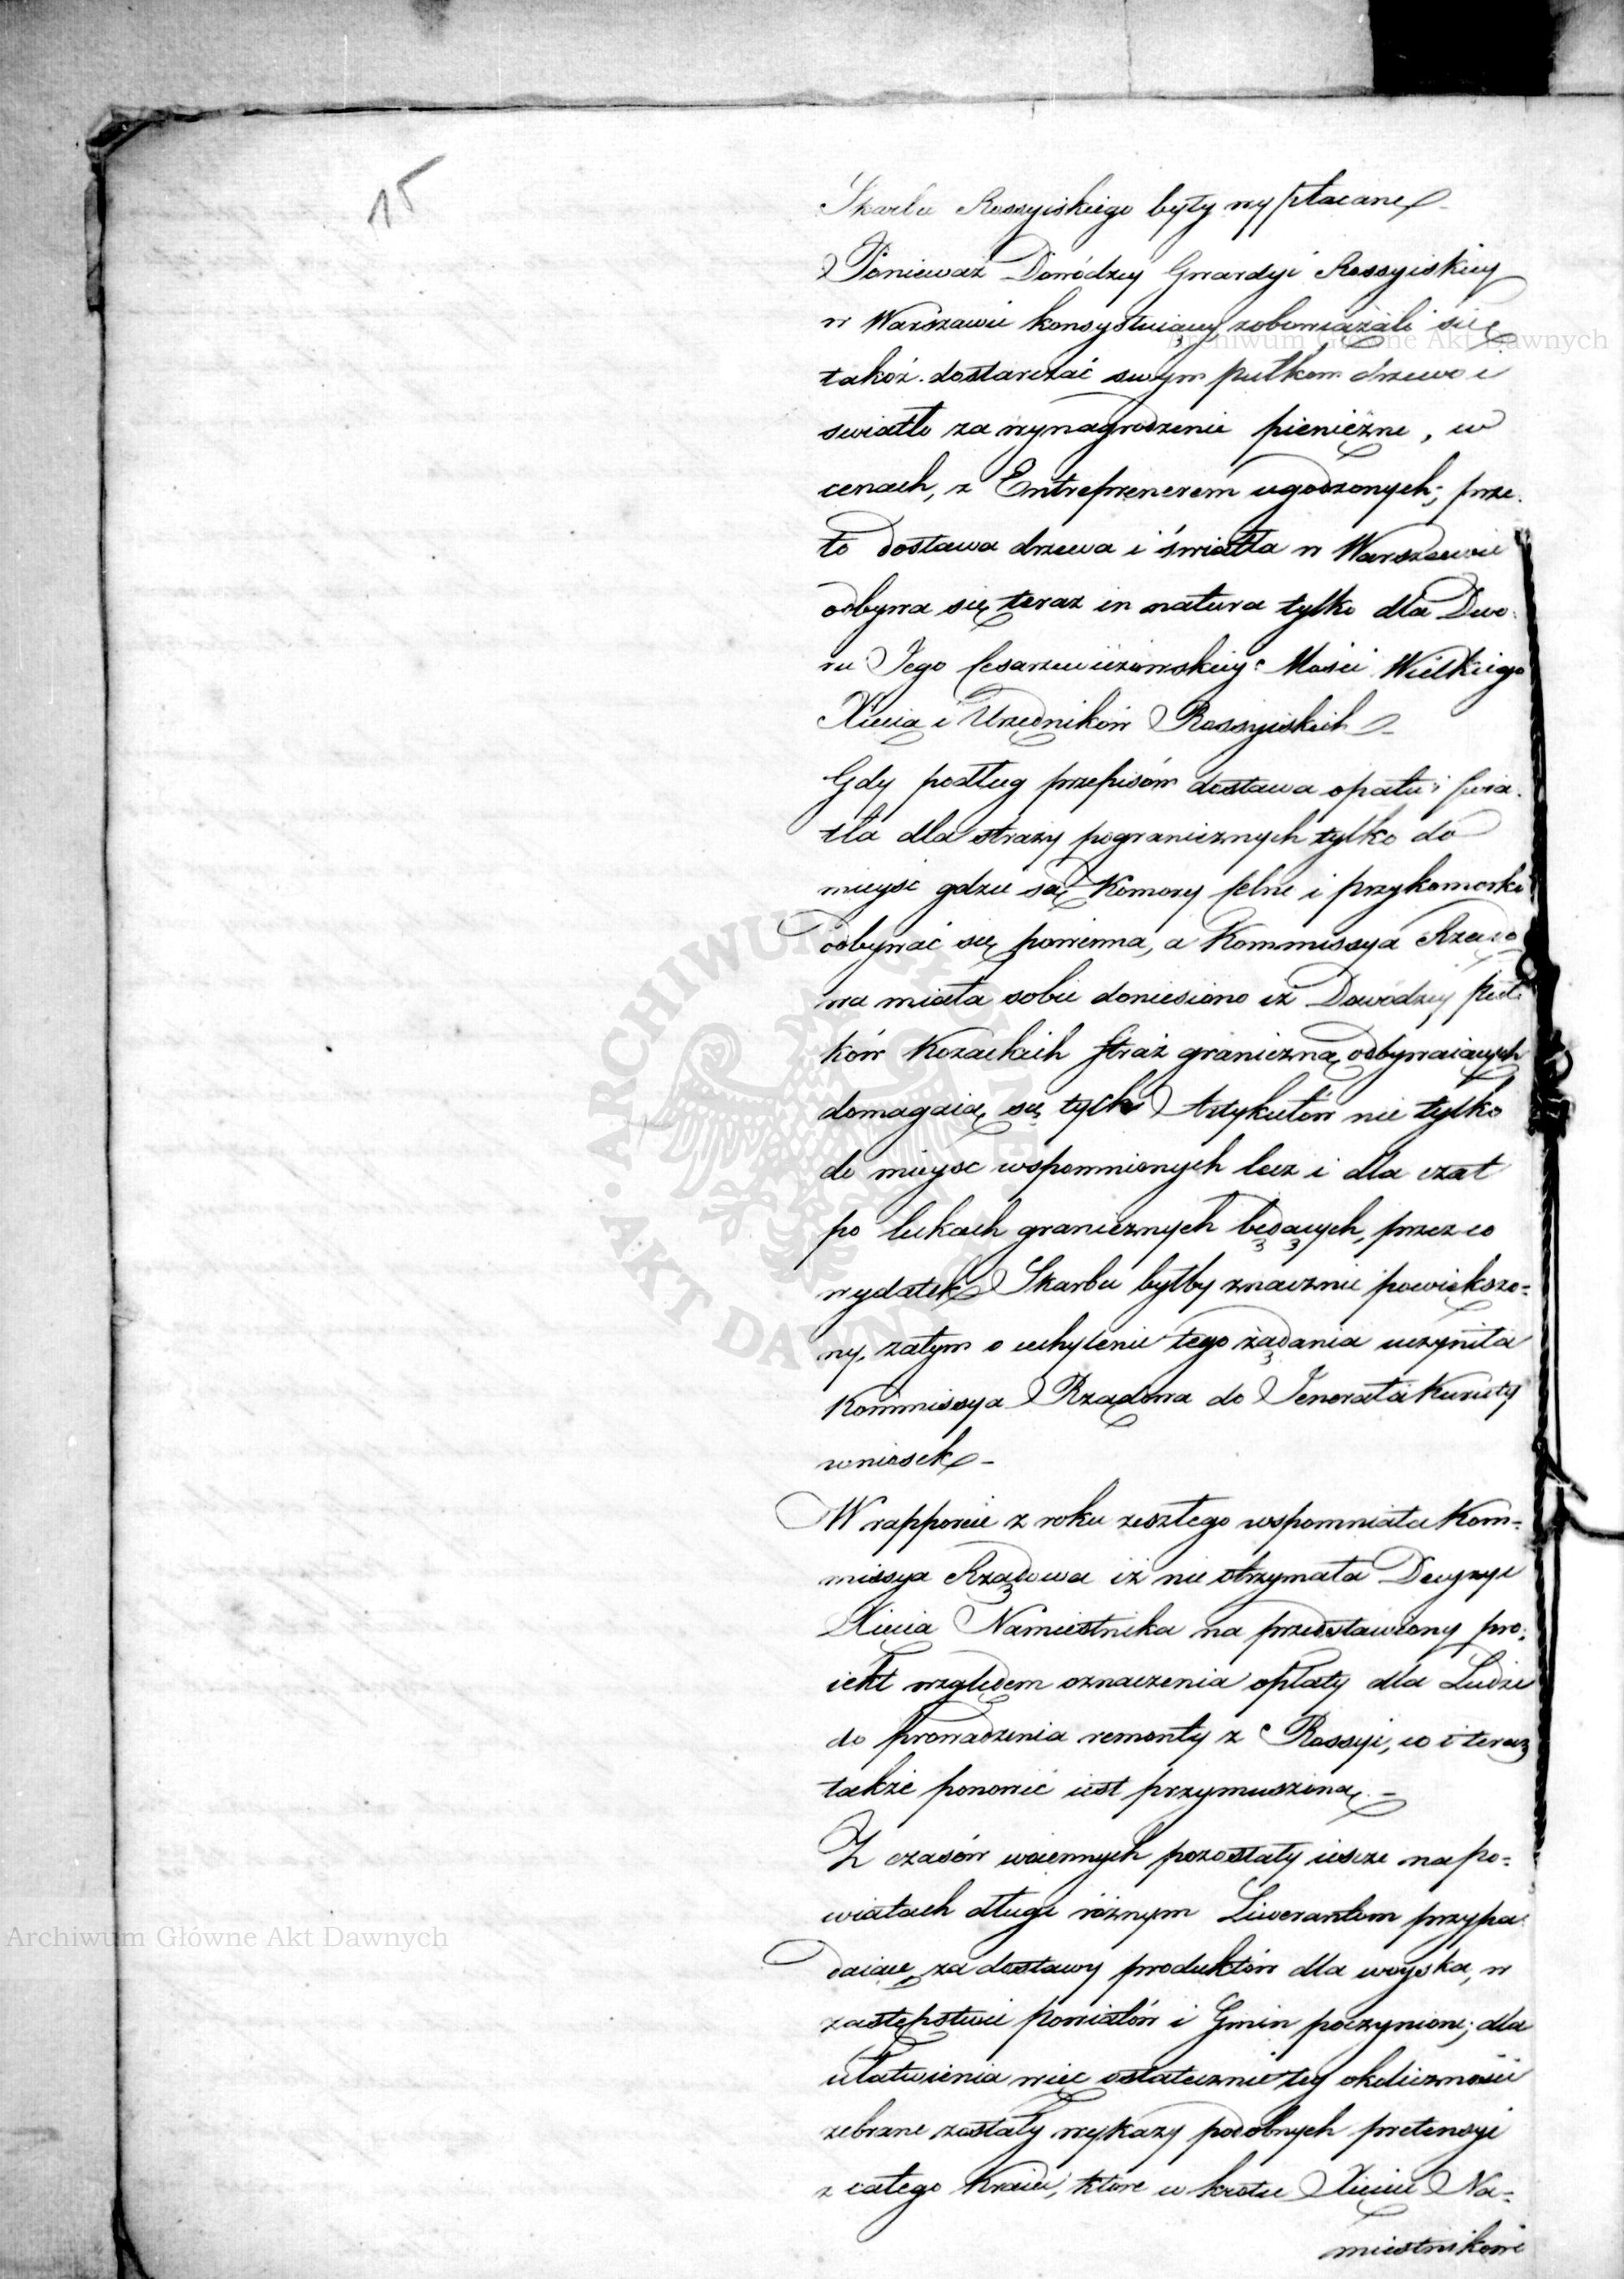 15
Skarbu Rossyiskiego były wypłacane
Ponieważ Dowódzcy Gwardyi Rossyiskiey
w Warszawie konsystuiącey zobowiązali się
takóż dostarczać swym pułkom drzewo i
swiatło za wynagrodzenie pieniężne, w
cenach, z Entreprenerem ugodzonych; prze-
to dostawa drzewa i światła w Warszawie
odbywa się teraz in natura tylko dla Dwo-
ru Jego Cesarzewiczowskiey Mości Wielkiego
Xięcia i Urzędników Rossyiskich
Gdy podług przepisów dostawa opału i swia-
tła dla straży pogranicznych tylko do
mieysc gdzie są Komory Celne i przykomorki
odbywać się powinna, a Kommissya Rządo-
wa miała sobie doniesiono iż Dowódzcy Puł-
ków Kozackich straż graniczną odbywaiących
domagaią się tych Artykułów nie tylko
do mieysc wspomnionych lecz i dla czat
po lukach granicznych będących, przez co
wydatek Skarbu byłby znacznie powiększo-
ny, zatym o uchylenie tego żądania uczyniła
Kommissya Rządowa do Jenerała Kuruty
wniosek
W rapporcie z roku zeszłego wspomniała Kom-
missya Rządowa iż nie otrzymała Decyzyi
Xięcia Namiestnika na przedstawiony pro-
iekt względem oznaczenia opłaty dla Ludzi
do prowadzenia remonty z Rossyi, co i teraz
także ponowić iest przymuszoną
Z czasów woiennych pozostały ieszcze na po-
wiatach długi różnym Liwerantom przypa-
daiące, za dostawy produktów dla woyska, w
zastępstwie powiatów i Gmin poczynione; dla
ułatwienia więc ostatecznie tey okoliczności
zebrane zostały wykazy podobnych pretensyi
z całego Kraiu, które w krotce Xięciu Na-
miestnikowi
Archiwum Główne Akt Dawnych
Archiwum Główne Akt Dawnych